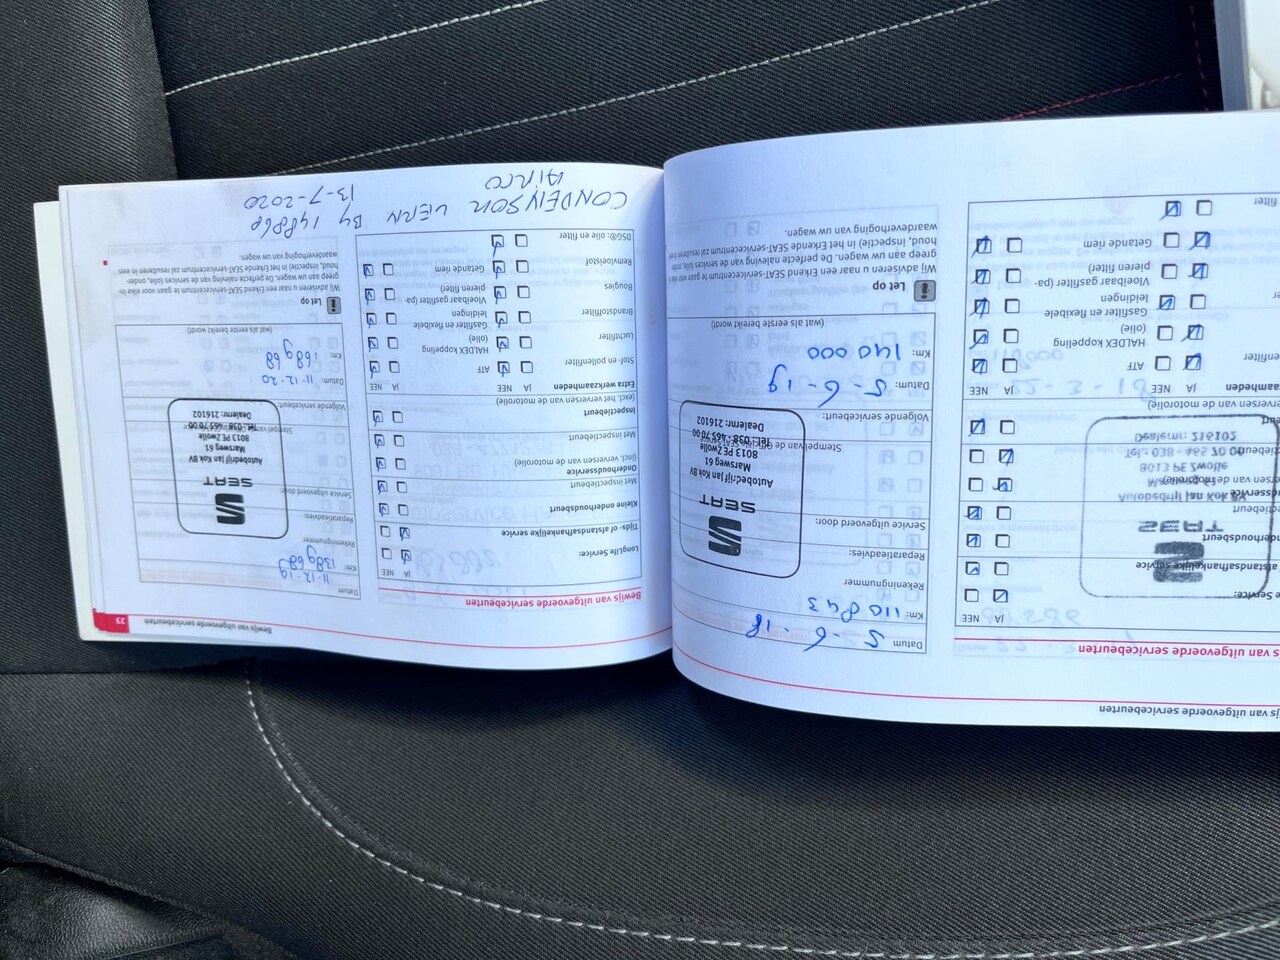 Bewijs van uitgevoerde servicebeurten
JA NEE
Datum 5-6-18
Km: 110843
Rekeningnummer
Reparatieadvies:
Service uitgevoerd door:
SEAT
Autobedrijf Jan Kok BV
Marsweg 61
8013 PE Zwolle
Tel.: 038-465 70 00
Dealernr: 216102
Volgende servicebeurt:
Datum: 5-6-19
Km: 140 000
(wat als eerste bereikt wordt)
Let op
Wij adviseren u naar een Erkend SEAT-servicecentrum te gaan voor
greep aan uw wagen. De perfecte naleving van de services (olie, onder-
houd, inspectie) in het Erkende SEAT-servicecentrum zal resulteren
waardevverhoging van uw wagen.
JA NEE
ATF
HALDEX koppeling
(olie)
Gasfilter en flexibele
leidingen
Vloeibaar gasfilter (pa-
pieren filter)
Getande riem
Bewijs van uitgevoerde servicebeurten 23
Bewijs van uitgevoerde servicebeurten
JA NEE
LongLife Service:
Tijds- of afstandsafhankelijke service
Kleine onderhoudsbeurt
Met inspectiebeurt
Onderhoudsservice
(incl. verversen van de motorolie)
Met inspectiebeurt
Inspectiebeurt
(excl. het verversen van de motorolie)
Extra werkzaamheden JA NEE JA NEE
Stof- en pollenfilter ATF
Luchtfilter HALDEX koppeling
(olie)
Brandstoffilter Gasfilter en flexibele
leidingen
Bougies Vloeibaar gasfilter (pa-
pieren filter)
Remvloeistof Getande riem
DSG®: olie en filter
CONDENSOR VERN BY 148864
AIRCO 13-7-2020
Datum 11-12-19
Km: 138968
Rekeningnummer
Reparatieadvies:
Service uitgevoerd door:
SEAT
Autobedrijf Jan Kok BV
Marsweg 61
8013 PE Zwolle
Tel.: 038-465 70 00
Dealernr: 216102
Volgende servicebeurt:
Datum: 11-12-20
Km: 168968
(wat als eerste bereikt wordt)
Let op
Wij adviseren u naar een Erkend SEAT-servicecentrum te gaan voor elke in-
greep aan uw wagen. De perfecte naleving van de services (olie, onder-
houd, inspectie) in het Erkende SEAT-servicecentrum zal resulteren in een
waardeverhoging van uw wagen.